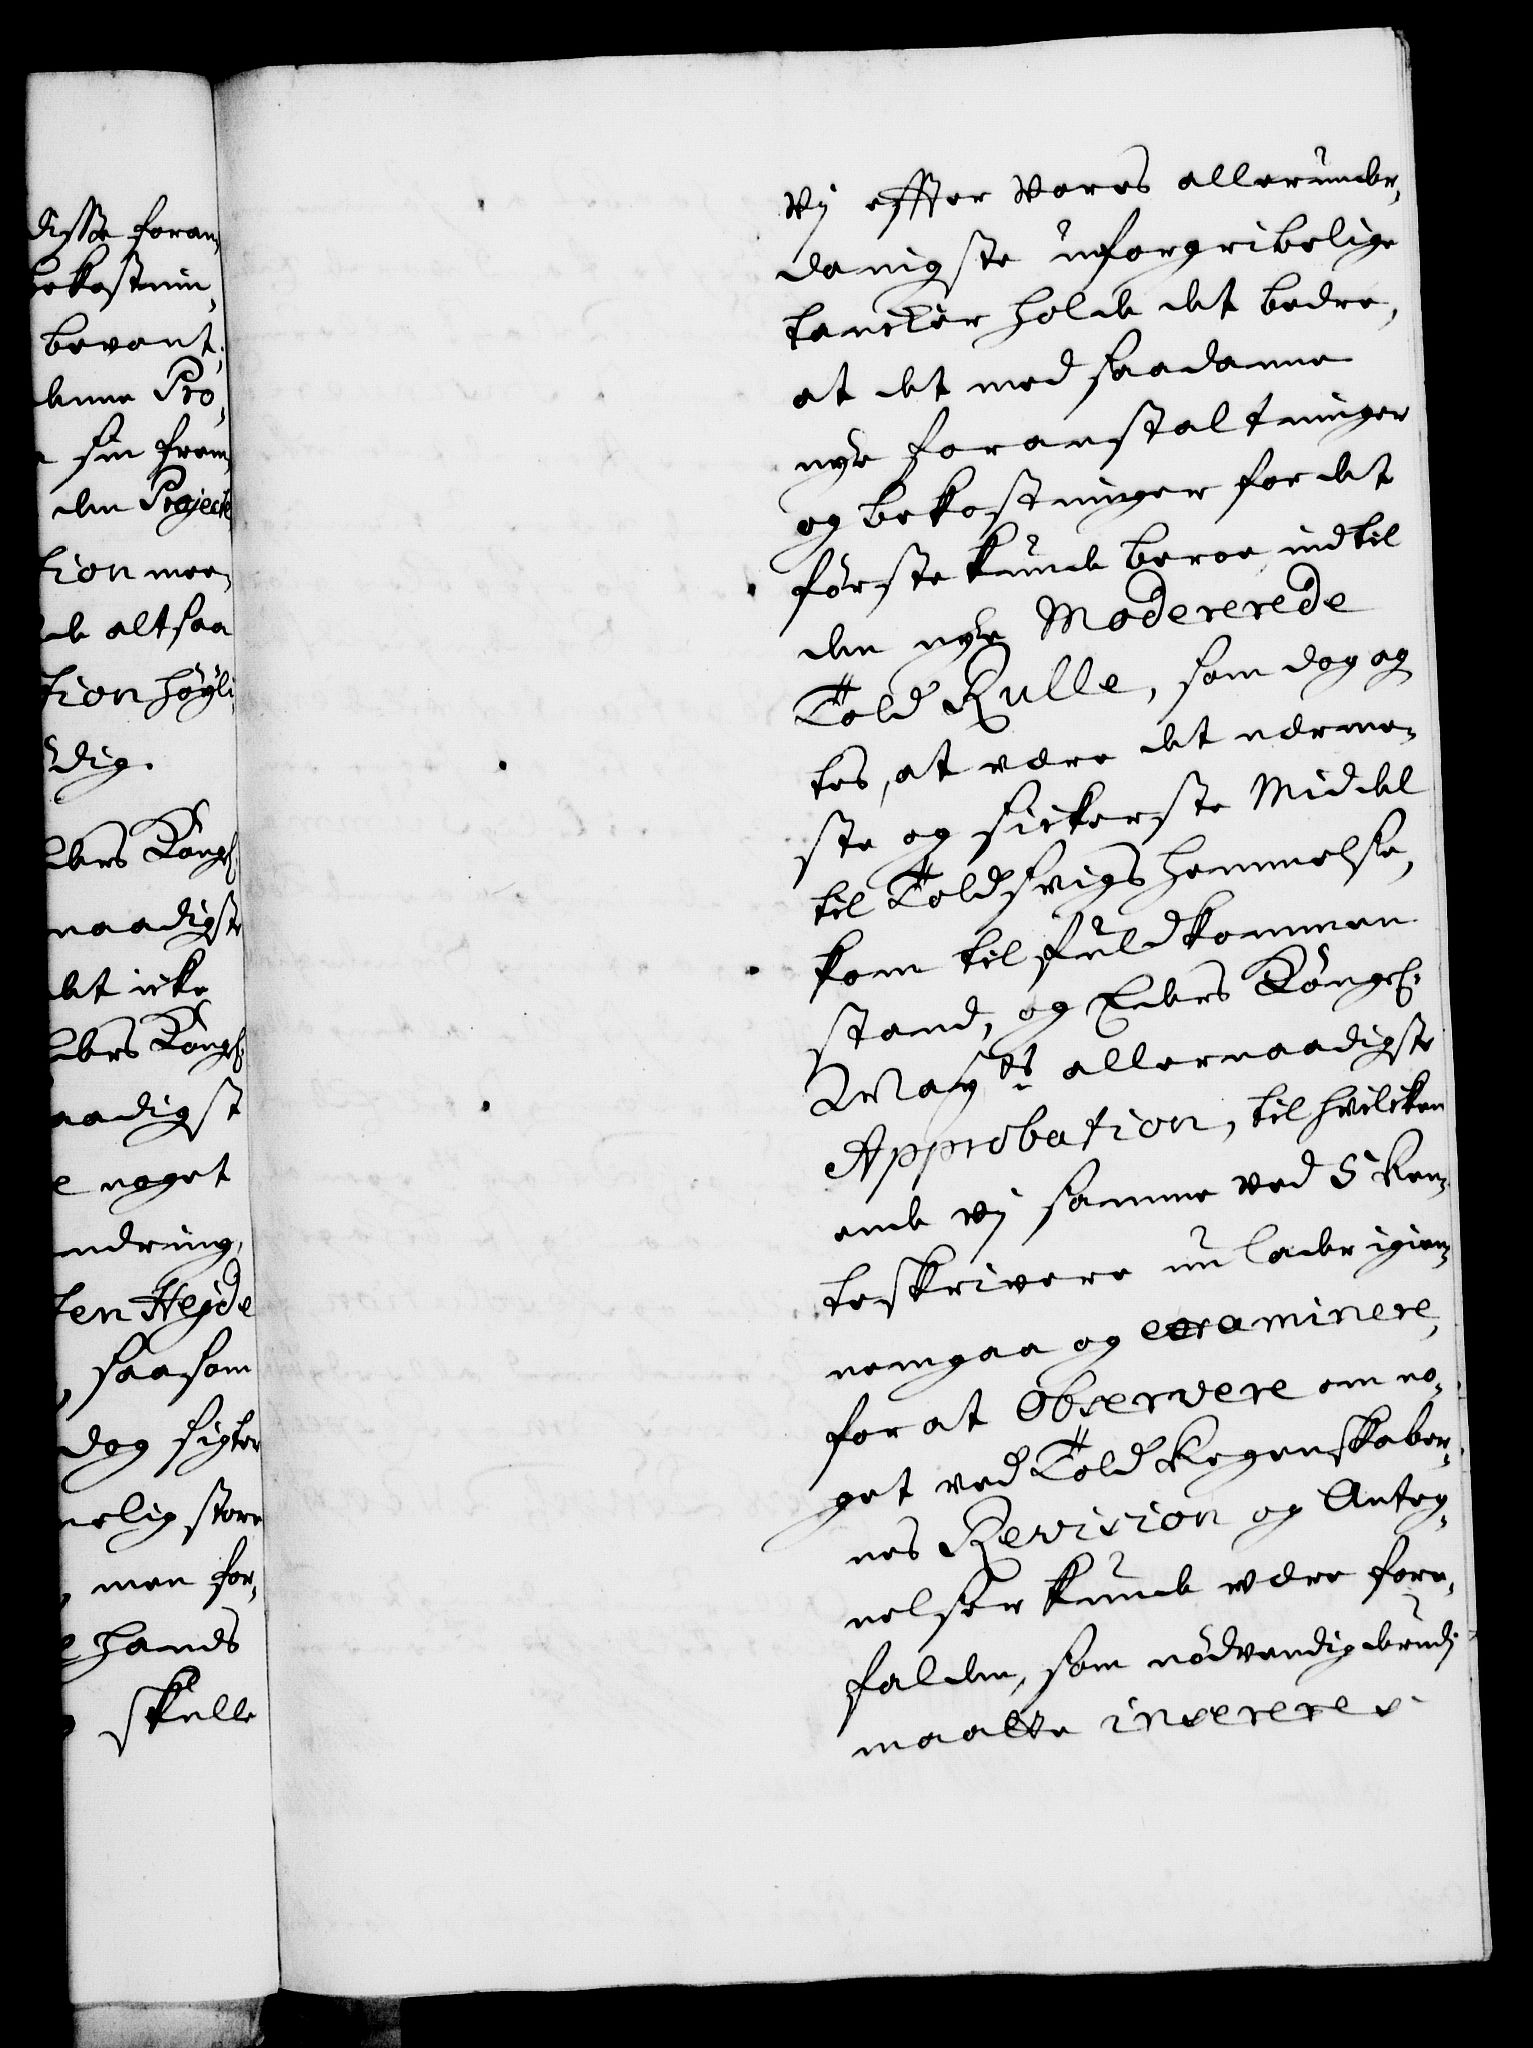 disse foran,
bekostnin,
bevant,
denne Pro,
sin frem,
den Projecte
tion mee,
de altsaa
tion höyli,
dig.
ders Kongl:
naadigste
det icke
ders Kongl:
aadigst
noget
ndring,
ten Heyde
saasom
dog sigter
nelig store
men for,
hands
skulle
Wj effter Vores allerunder,
danigste uforgribelige
tancker holde det bedre,
at det med saadanne
nye foranstaltninger
og bekostninger for det
förste kunde beroe indtil
den nye Modererede
Told Rulle, som dog og
tes, at være det nærme,
ste og sickerste Middel
til Toldsvigs hemmelse,
kom til fuldkommen
stand, og Eders Kongl:
May.ts allernaadigste
Approbation, til hvilcken
ende wj samme ved 5 Ren,
teskrivere nu lader igien,
nemgaa og examinere,
for at observere om no,
get ved Told Regenskaber,
nes Revision og Anteg,
nelser kunde være fore,
falden, som nödvendig derudj
maatte insereres.